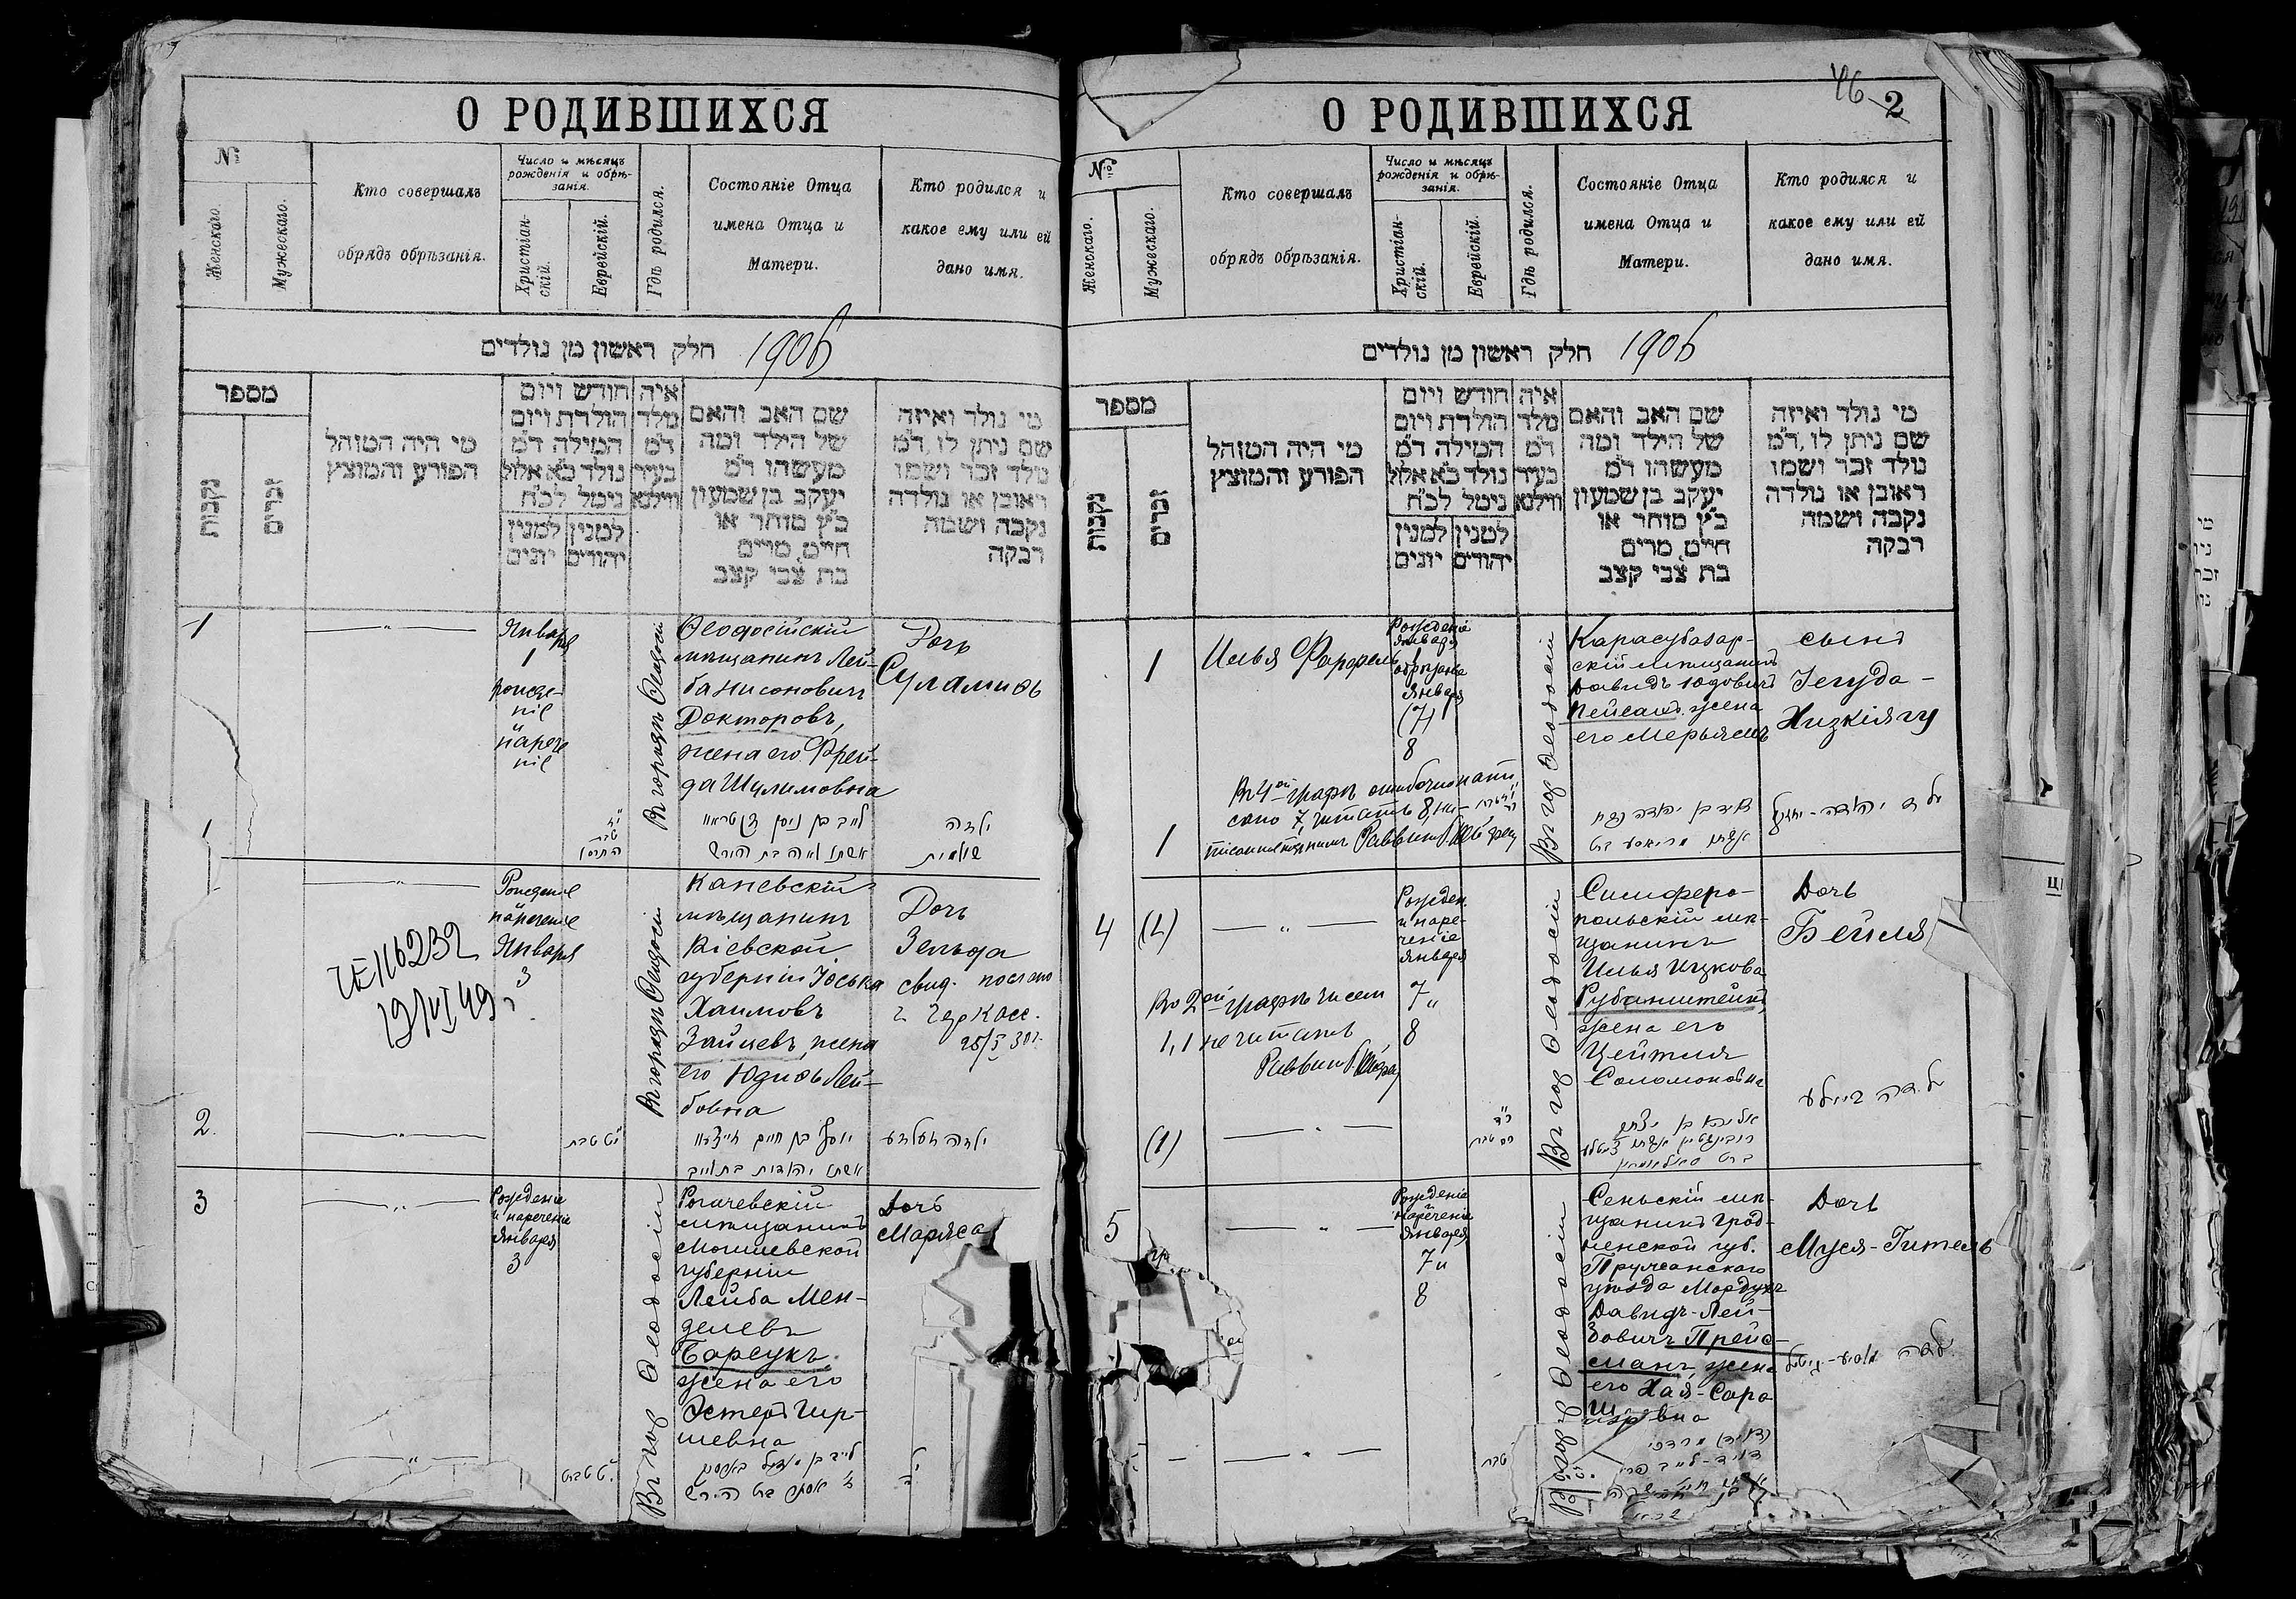 О РОДИВШИХСЯ
№
Женскаго.
Мужескаго.
Кто совершалъ
обрядъ обрѣзанія.
Число и мѣсяцъ
рожденія и обрѣ-
занія.
Христіан-
скій.
Еврейскій.
Гдѣ родился.
Состояніе Отца
имена Отца и
Матери.
Кто родился и
какое ему или ей
дано имя.
חלק ראשון מן נולדים 1906
מספר
נקבות
זכרים
מי היה המוהל
הפורע והמוצץ
חודש ויום
הולדת ויום
המילה ד״מ
נולד כ״א אלול
נימל לכ״ח
למנין
יהודים
למנין
יונים
איה
מלד
ד״מ
בעיר
ווילנא
שם האב והאם
של הילד ומה
מעשהו ד״מ
יעקב בן שמעון
כ״ץ סוחר או
חייט, מרים
בת צבי קצב
מי נולד ואיזה
שם ניתן לו, ד״מ
נולד זכר ושמו
ראובן או נולדה
נקבה ושמה
רבקה
1
Января
1
рожде-
ніе
и
нарече
ніе
Въ городѣ Ѳеодосіи
Ѳеодосійскій
мѣщанинъ Лей-
ба Нисоновичъ
Докторовъ,
жена его Фрей-
да Шулимовна
Дочь
Суламиѳь
1
טבת
ילדה
שולמית
Рожденіе
и
нареченіе
Января
3
Въ городѣ Ѳеодосіи
Каневскій
мѣщанинъ
Кіевской
губерніи Іоська
Хаимовъ
Зайцевъ, жена
его Юдиѳь Лей-
бовна
Дочь
Зельда
свид. послано
г. Черкасс.
2
י״ט טבת
יוסף בן חיים זייצעוו
אשתו יהודית בת לייב
ילדה זעלדע
3
Рожденіе
и нареченіе
Января
3
Въ гор Ѳеодосіи
Рогачевскій
мѣщанинъ
Могилевской
губерніи
Лейба Мен-
делевъ
Барсукъ,
жена его
Эстеръ Гир-
шевна
Дочь
Маряса
О РОДИВШИХСЯ
46
2
№
Женскаго.
Мужескаго.
Кто совершалъ
обрядъ обрѣзанія.
Число и мѣсяцъ
рожденія и обрѣ-
занія.
Христіан-
скій.
Еврейскій.
Гдѣ родился.
Состояніе Отца
имена Отца и
Матери.
Кто родился и
какое ему или ей
дано имя.
חלק ראשון מן נולדים 1906
מספר
נקבות
זכרים
מי היה המוהל
הפורע והמוצץ
חודש ויום
הולדת ויום
המילה ד״מ
נולד כ״א אלול
נימל לכ״ח
למנין
יהודים
למנין
יונים
איה
מלד
ד״מ
בעיר
ווילנא
שם האב והאם
של הילד ומה
מעשהו ד״מ
יעקב בן שמעון
כ״ץ סוחר או
חייט, מרים
בת צבי קצב
מי נולד ואיזה
שם ניתן לו, ד״מ
נולד זכר ושמו
ראובן או נולדה
נקבה ושמה
רבקה
1
Илья Фарфель
Рожденіе
Января
1
обрѣзаніе
Января
(7)
8
Въ гор Ѳеодосіи
Карасубазар-
скій мѣщанинъ
Давидъ Юдовичъ
Пейсахъ, жена
его Мерьямъ
сынъ
Іегуда-
Хизкіягу
Въ 4ой графѣ ошибочно напи
сано 7, читать 8, на-
Раввинъ
1
4
(1)
Рожден.
и наре-
ченіе
Января
7 и
8
Въ гор Ѳеодосіи
Симферо-
польскій мѣ-
щанинъ
Илья Ицкова
Рубинштейнъ,
жена его
Цейтля
Соломоновна
Дочь
Бейля
Во 2ой графѣ чисел
1, 1 не читать
Раввинъ
ילדה ביילע
(1)
5
Рожденіе
и
нареченіе
Января
7 и
8
Въ гор. Ѳеодосіи
Сеньскій мѣ-
щанинъ Грод-
ненской губ.
Пружанскаго
уѣзда Мордухъ
Давидъ-Лей-
бовичъ Прейс-
манъ, жена
его Хая-Сара
Дочь
Муся-Гитель
טבת